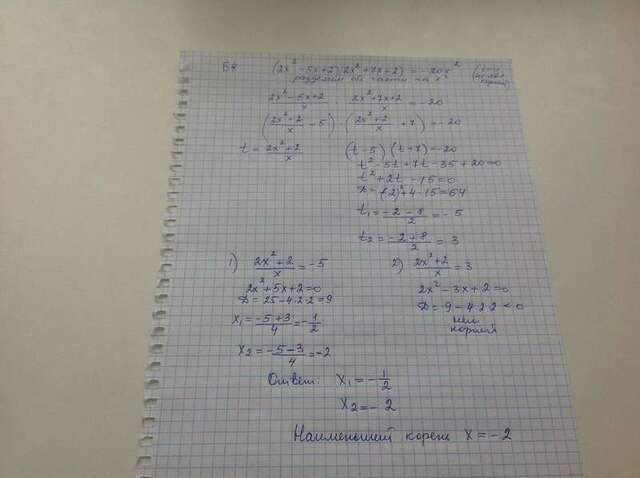 (2x² - 5x + 2)(2x² + 7x + 2) = -20x²
разделим обе части на x²
2x² - 5x + 2 / x · 2x² + 7x + 2 / x = -20
(2x² + 2 / x - 5) (2x² + 2 / x + 7) = -20
t = 2x² + 2 / x (t - 5)(t + 7) = -20
t² - 5t + 7t - 35 + 20 = 0
t² + 2t - 15 = 0
D = (2)² + 4·15 = 64
t₁ = -2 - 8 / 2 = -5
t₂ = -2 + 8 / 2 = 3
1) 2x² + 2 / x = -5 2) 2x² + 2 / x = 3
2x² + 5x + 2 = 0 2x² - 3x + 2 = 0
D = 25 - 4·2·2 = 9 D = 9 - 4·2·2 < 0
нет
корней
x₁ = -5 + 3 / 4 = -1/2
x₂ = -5 - 3 / 4 = -2
Ответ: x₁ = -1/2
x₂ = -2
Наименьший корень x = -2